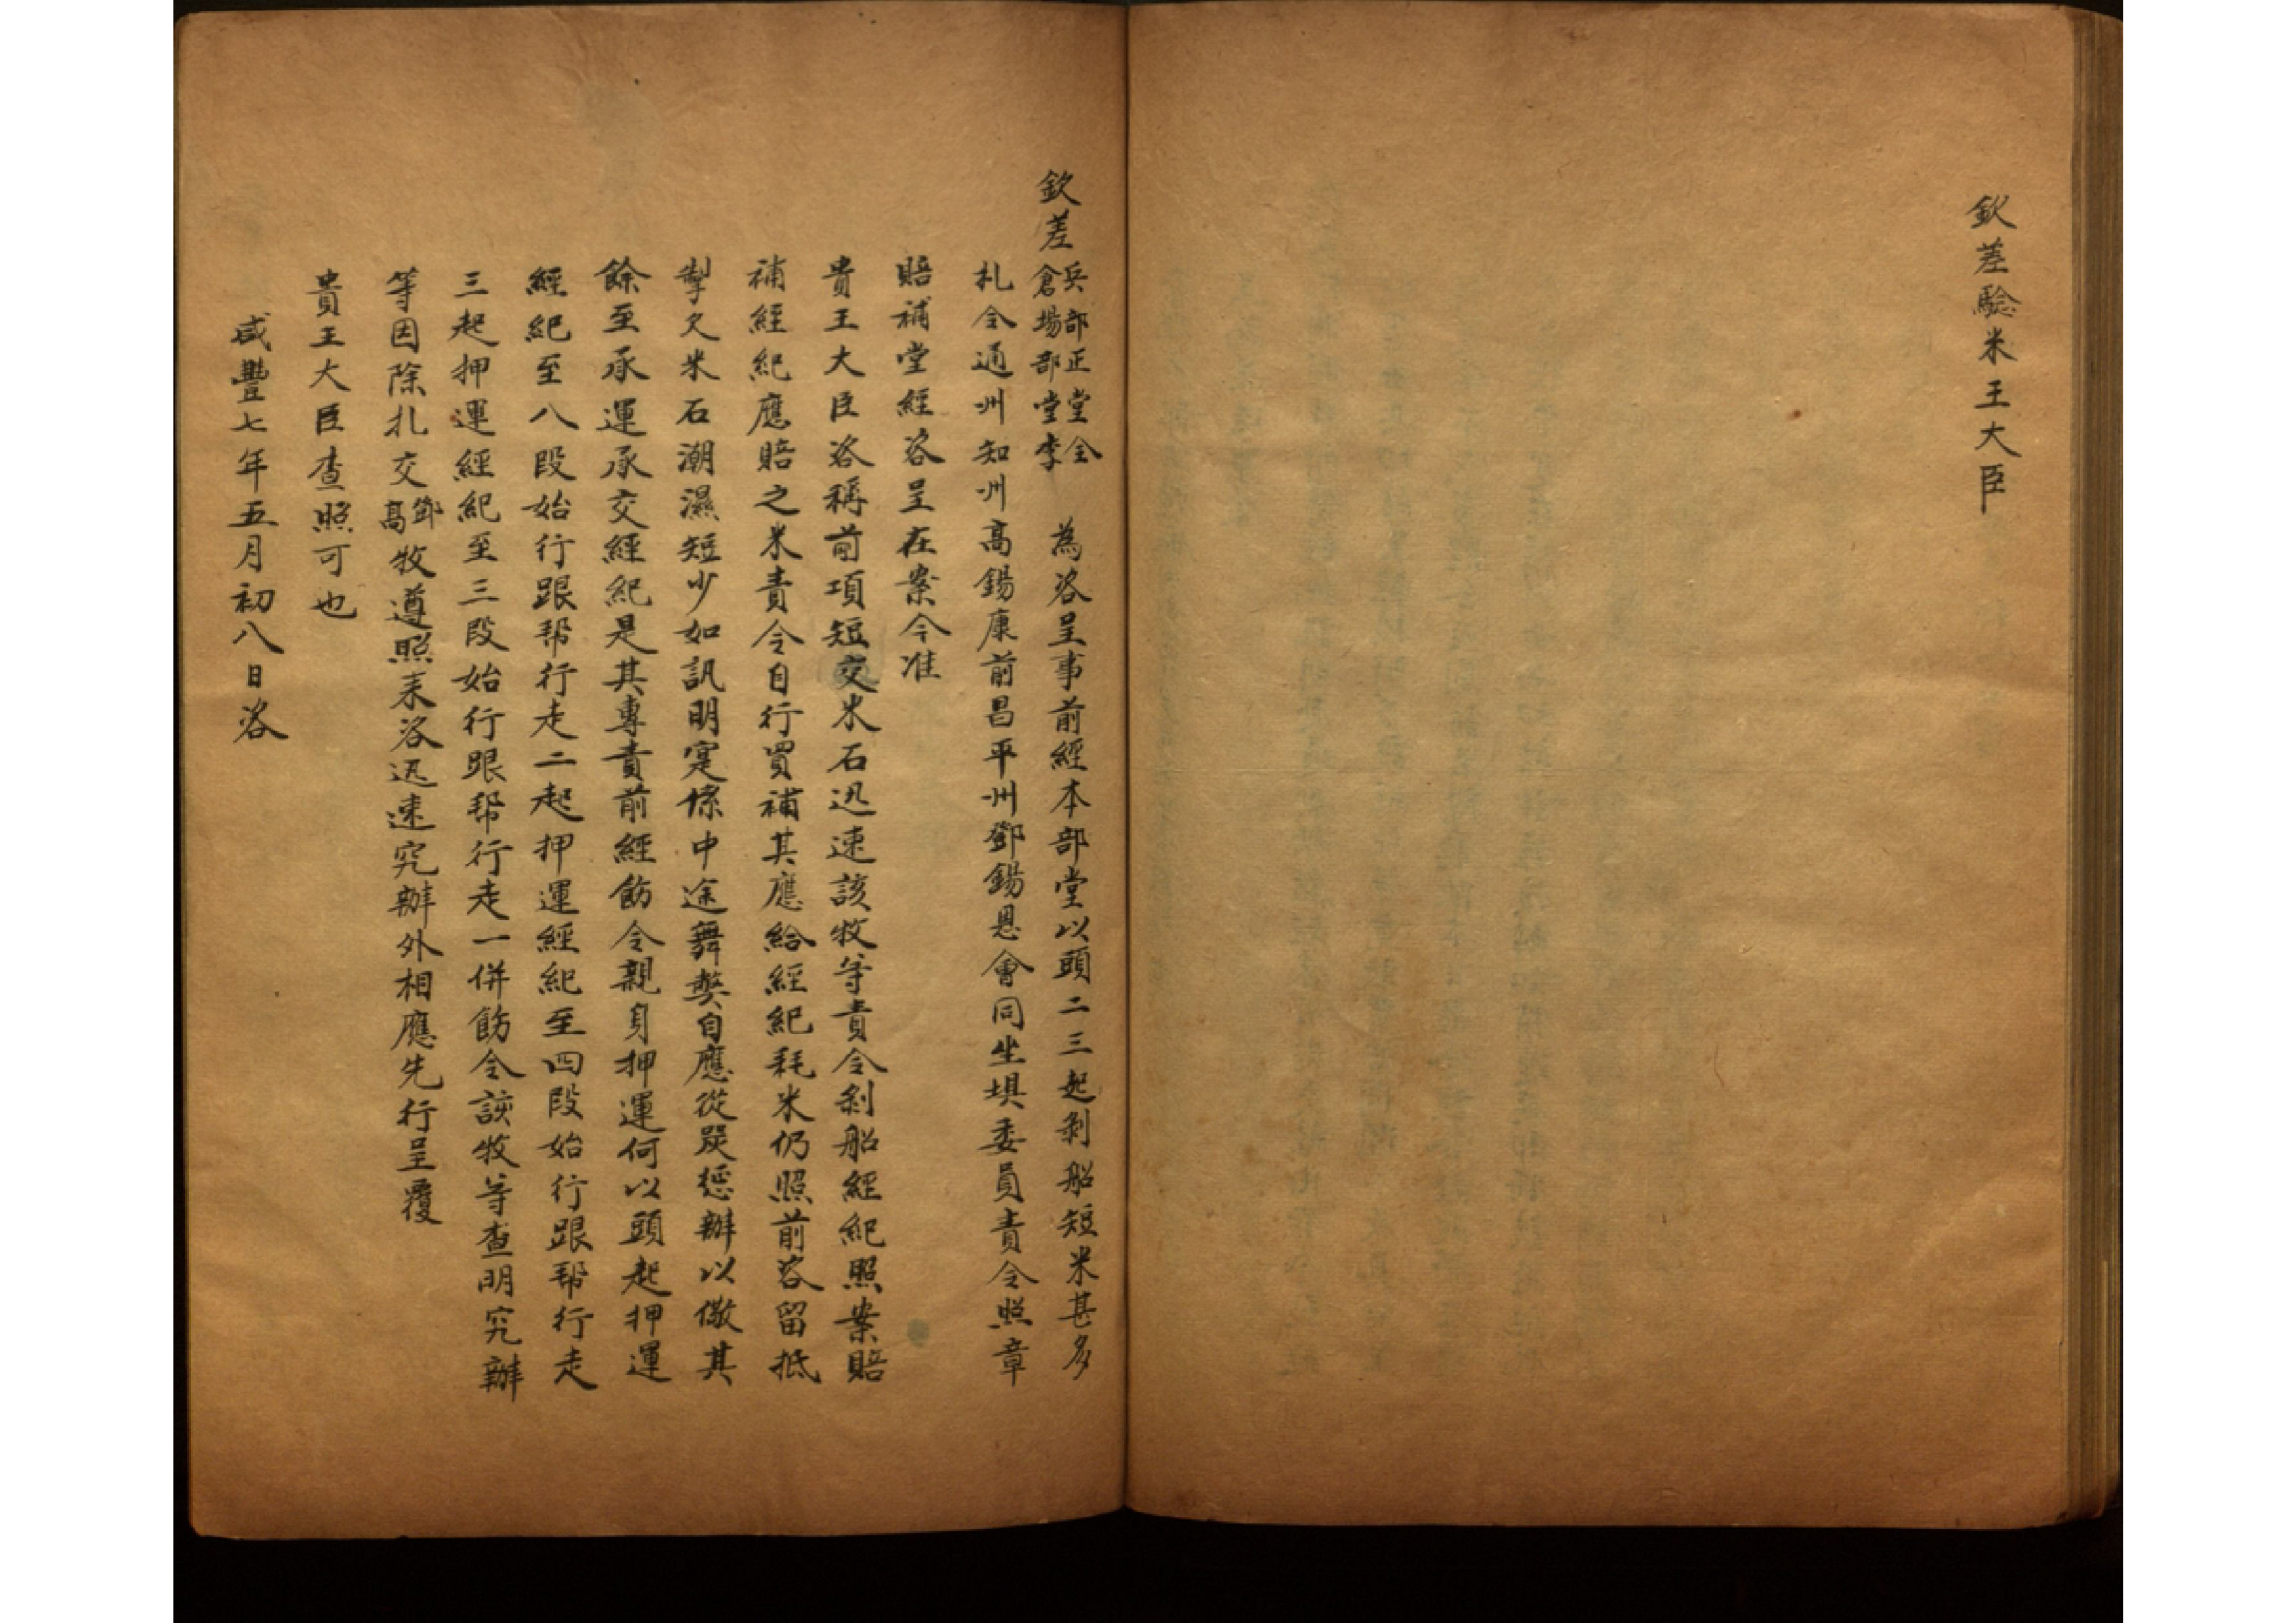 欽差驗米王大臣
欽差兵部正堂全倉場部堂李 為咨呈事前經本部堂以頭二三起剝船短米甚多
札令通州知州高錫康前昌平州鄧錫恩會同坐壩委員責令照章
賠補堂經咨呈在案今准
貴王大臣咨稱前項短交米石迅速該牧等責令剝船經紀照案賠
補經紀應賠之米責令自行買補其應給經紀耗米仍照前咨留抵
掣欠米石潮濕短少如訊明寔係中途舞弊自應從嚴懲辦以儆其
餘至承運承交經紀是其專責前經飭令親身押運何以頭起押運
經紀至八段始行跟帮行走二起押運經紀至四段始行跟帮行走
三起押運經紀至三段始行跟帮行走一併飭令該牧等查明究辦
等因除札交鄧高牧遵照來咨迅速究辦外相應先行呈覆
貴王大臣查照可也
咸豐七年五月初八日咨